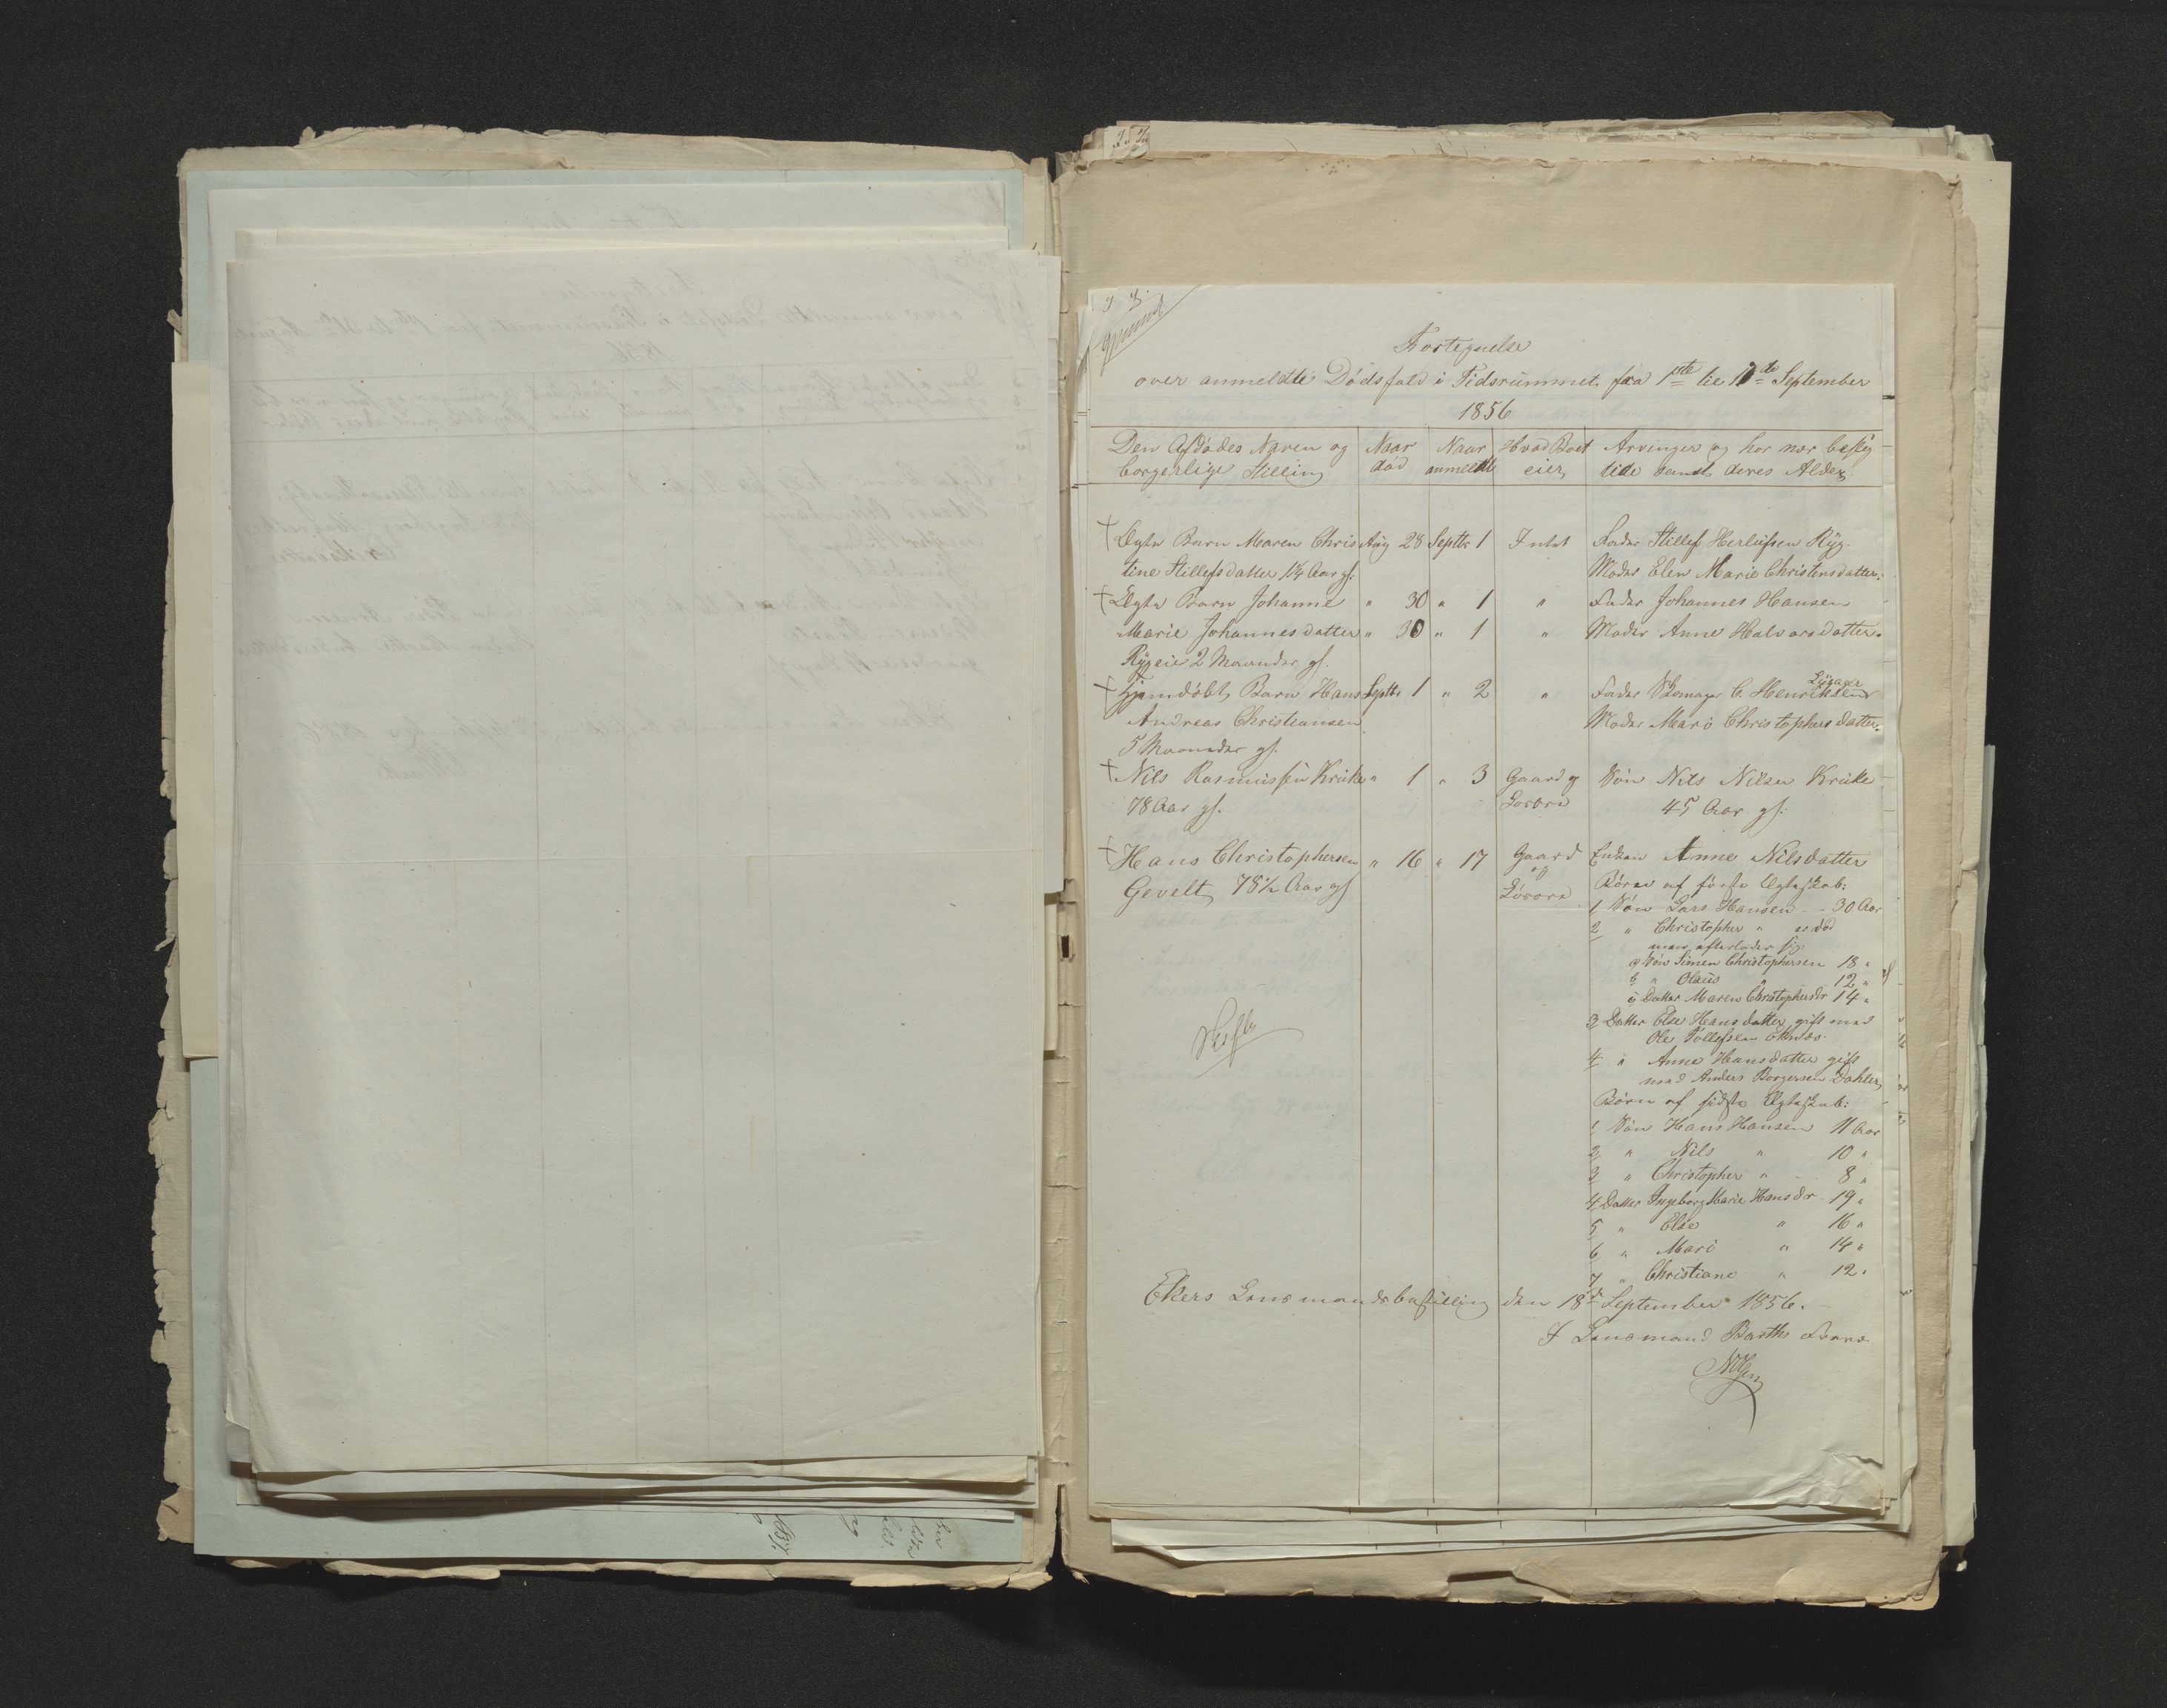 Fortegnelse
over anmeldte Dødsfald i Tidsrummet fra 1ste til 17de September
1856
Den Afdødes Navn og borgerlige Stilling
Naar død
Naar anmeldt
Hvad Boet eier
Arvinger og hvor nær beslægtede samt deres Alder
† Ægte Barn Maren Chris Aug 28 Septbr 1 Intet Fader Stillef Herlufsen Ryg.
tine Stillefsdatter 1¼ Aar gl. Moder Elen Marie Christensdatter.
† Ægte Barn Johanne " 30 " 1 " Fader Johannes Hansen
Marie Johannesdatter " 30 " 1 " Moder Anne Halvorsdatter.
Rygeie 2 Maaneder gl.
† Hjemdøbt Barn Hans Septbr 1 " 2 " Fader Skomager C. Henriksen
Andreas Christiansen Moder Mari Christophersdatter.
5 Maaneder gl.
† Nils Rasmussen Kruke " 1 " 3 Gaard og Søn Nils Nilsen Kruke
78 Aar gl. Løsøre 45 Aar gl.
† Hans Christophersen " 16 " 17 Gaard Enken Anne Nilsdatter
Gevelt 78½ Aar gl og Løsøre Børn af første Ægteskab:
1, Søn Lars Hansen - - 30 Aar
2 " Christopher " er død
men efterlader sig:
a Søn Simen Christophersen 18 "
b " Olaus " 12 "
c Datter Maren Christophersdr 14 "
3, Datter Else Hansdatter gift med
Ole Tollefsen
4 " Anne Hansdatter gift
med Anders Borgersen Dahler
Børn af sidste Ægteskab:
1 Søn Hans Hansen 11 Aar
2, " Nils " 10 "
3 " Christopher " - - 8 "
4, Datter Ingeborg Marie Hansdr 19 "
5 " Else " 16 "
6 " Mari " 14 "
7 " Christiane " 12 "
Ekers Lensmandsbestilling den 18d September 1856.
I Lensmand Barths Fravær